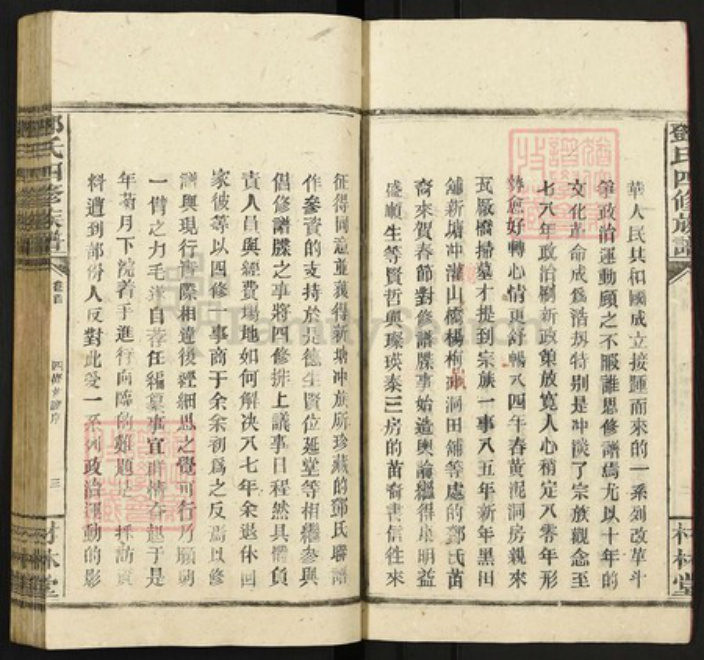 鄧氏四修族譜
華人民共和國成立接踵而來的一系列改革斗
爭政治運動顧之不暇誰思修譜焉尤以十年的
文化革命成爲浩刼特别是冲淡了宗族觀念至
七八年政治刷新政策放寬人心稍定八零年形
勢愈好轉心情更舒暢八四年春黄泥洞房親來
瓦廠橋掃墓才提到宗族一事八五年新年黑田
舖新塘冲灌山橋楊梅冲洞田舖等處的鄧氏苗
裔來賀春節對修譜牒事始造輿論繼得 明益
盛順生等賢哲興璨瑛泰三房的苗裔書信往來
材林堂
征得同意並獲得新塘冲族所珍藏的鄧氏聯譜
作參資的支持於是德生賢位延堂等相繼參與
倡修譜牒之事將四修排上議事日程然具備負
責人員與經費場地如何解决八七年余退休回
家彼等以四修 事商于余余初爲之反焉以修
譜與現行 際相違後經細思之覺可行乃願効
一臂之力毛遂自荐任編纂事宜群情奋起于是
年菊月下浣着手進行向陣的難題是 採訪資
料遭到部份人反對此受一系列政治運動的影
鄧氏四修族譜
卷首
四修 譜序
三
材林堂
FamilySearch